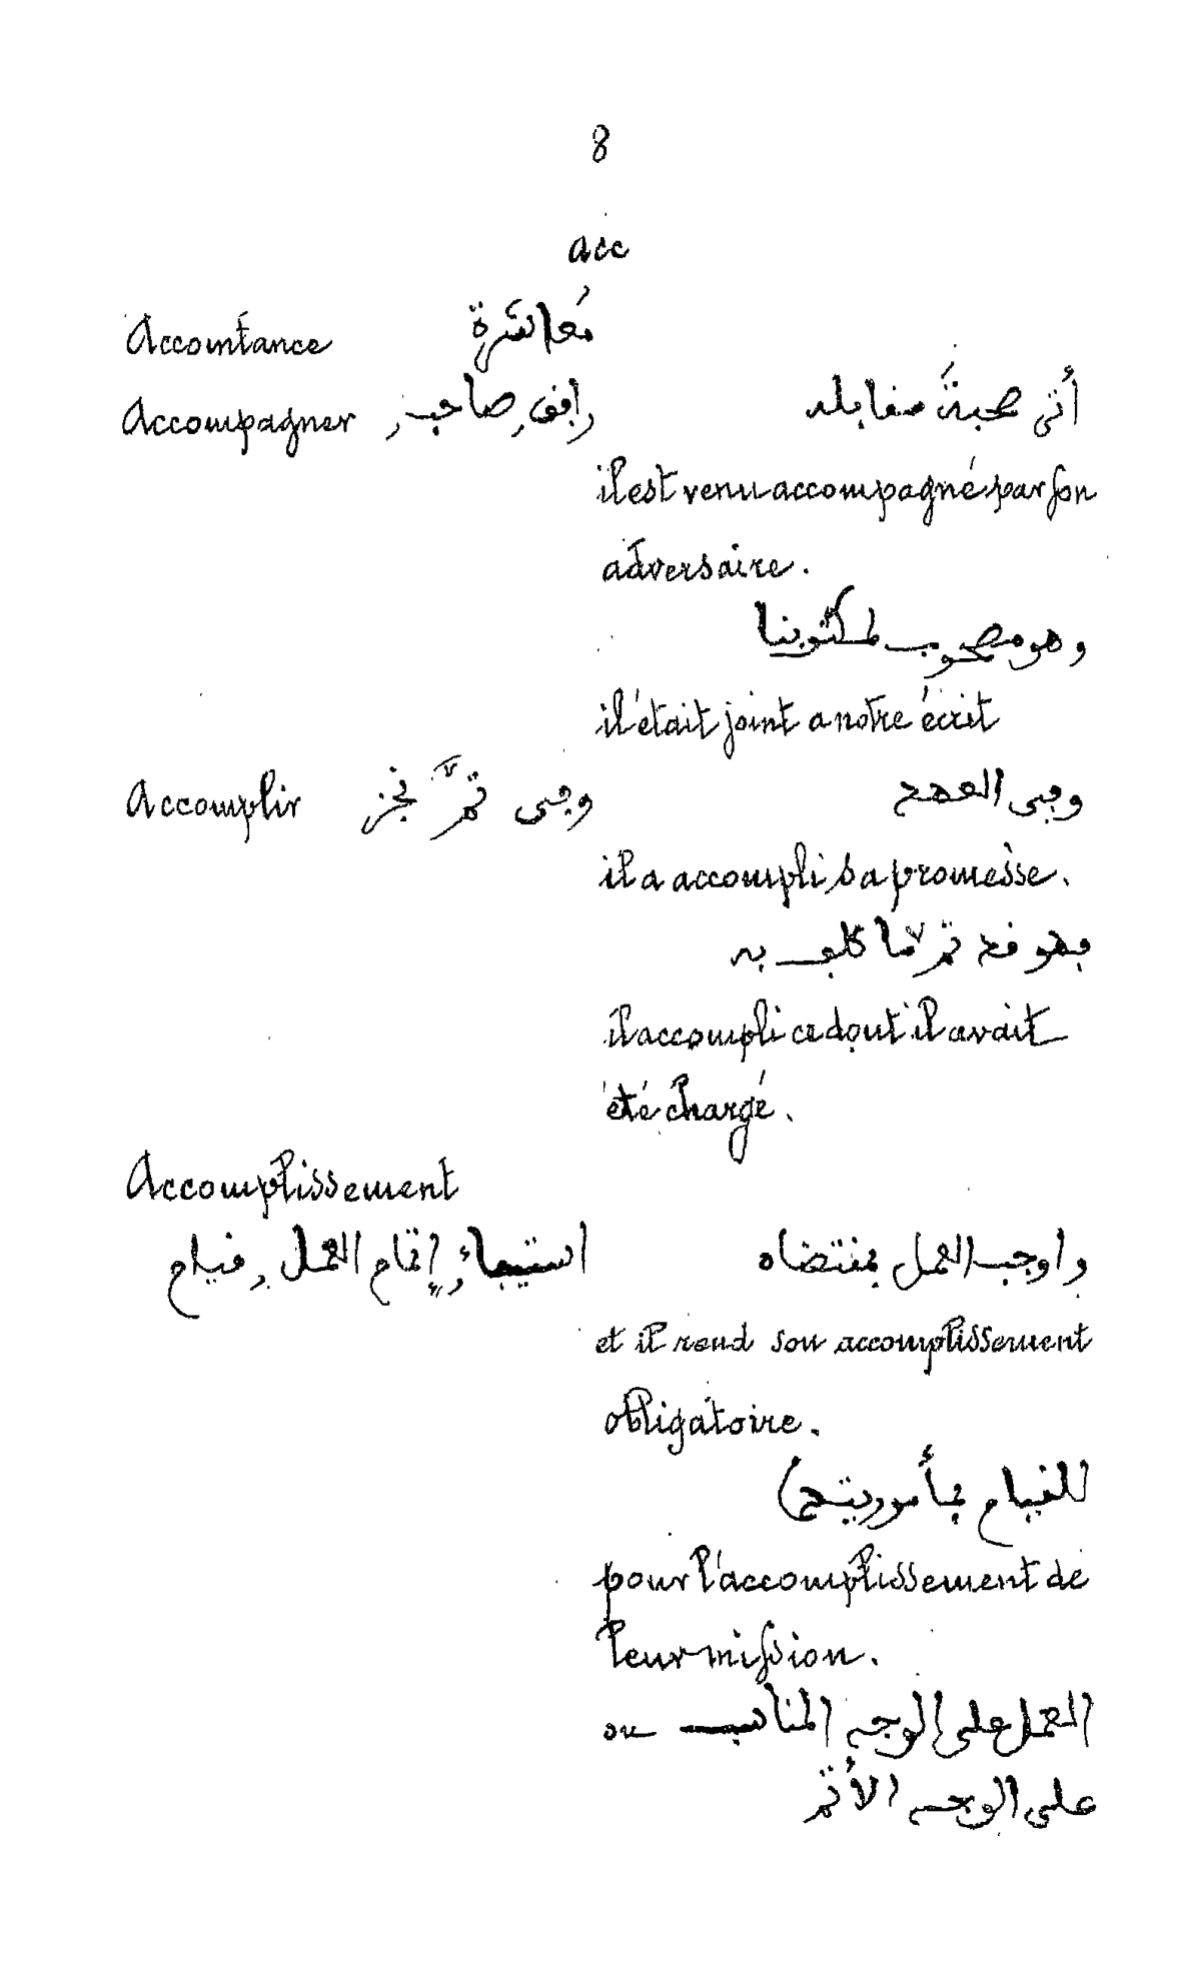 8
acc
Accointance مُعاشَرة
Accompagner رافق, صاحب, أتى صحبةَ مقابله
il est venu accompagné par son
adversaire.
وهو مصحوب لمكتوبنا
il était joint a notre écrit
Accomplir وفى تمَّ نجز وفى العهد
il a accompli sa promesse.
فهو قد تمّ ما كلف به
il accompli ce dont il avait
été chargé.
Accomplissement
استيفاء, إتمام العمل, قيام واوجب العمل بمقتضاه
et il rend son accomplissement
obligatoire.
للقيام بمأموريتهما
pour l'accomplissement de
leur mission.
العمل على الوجه المناسب ou
على الوجه الأتم